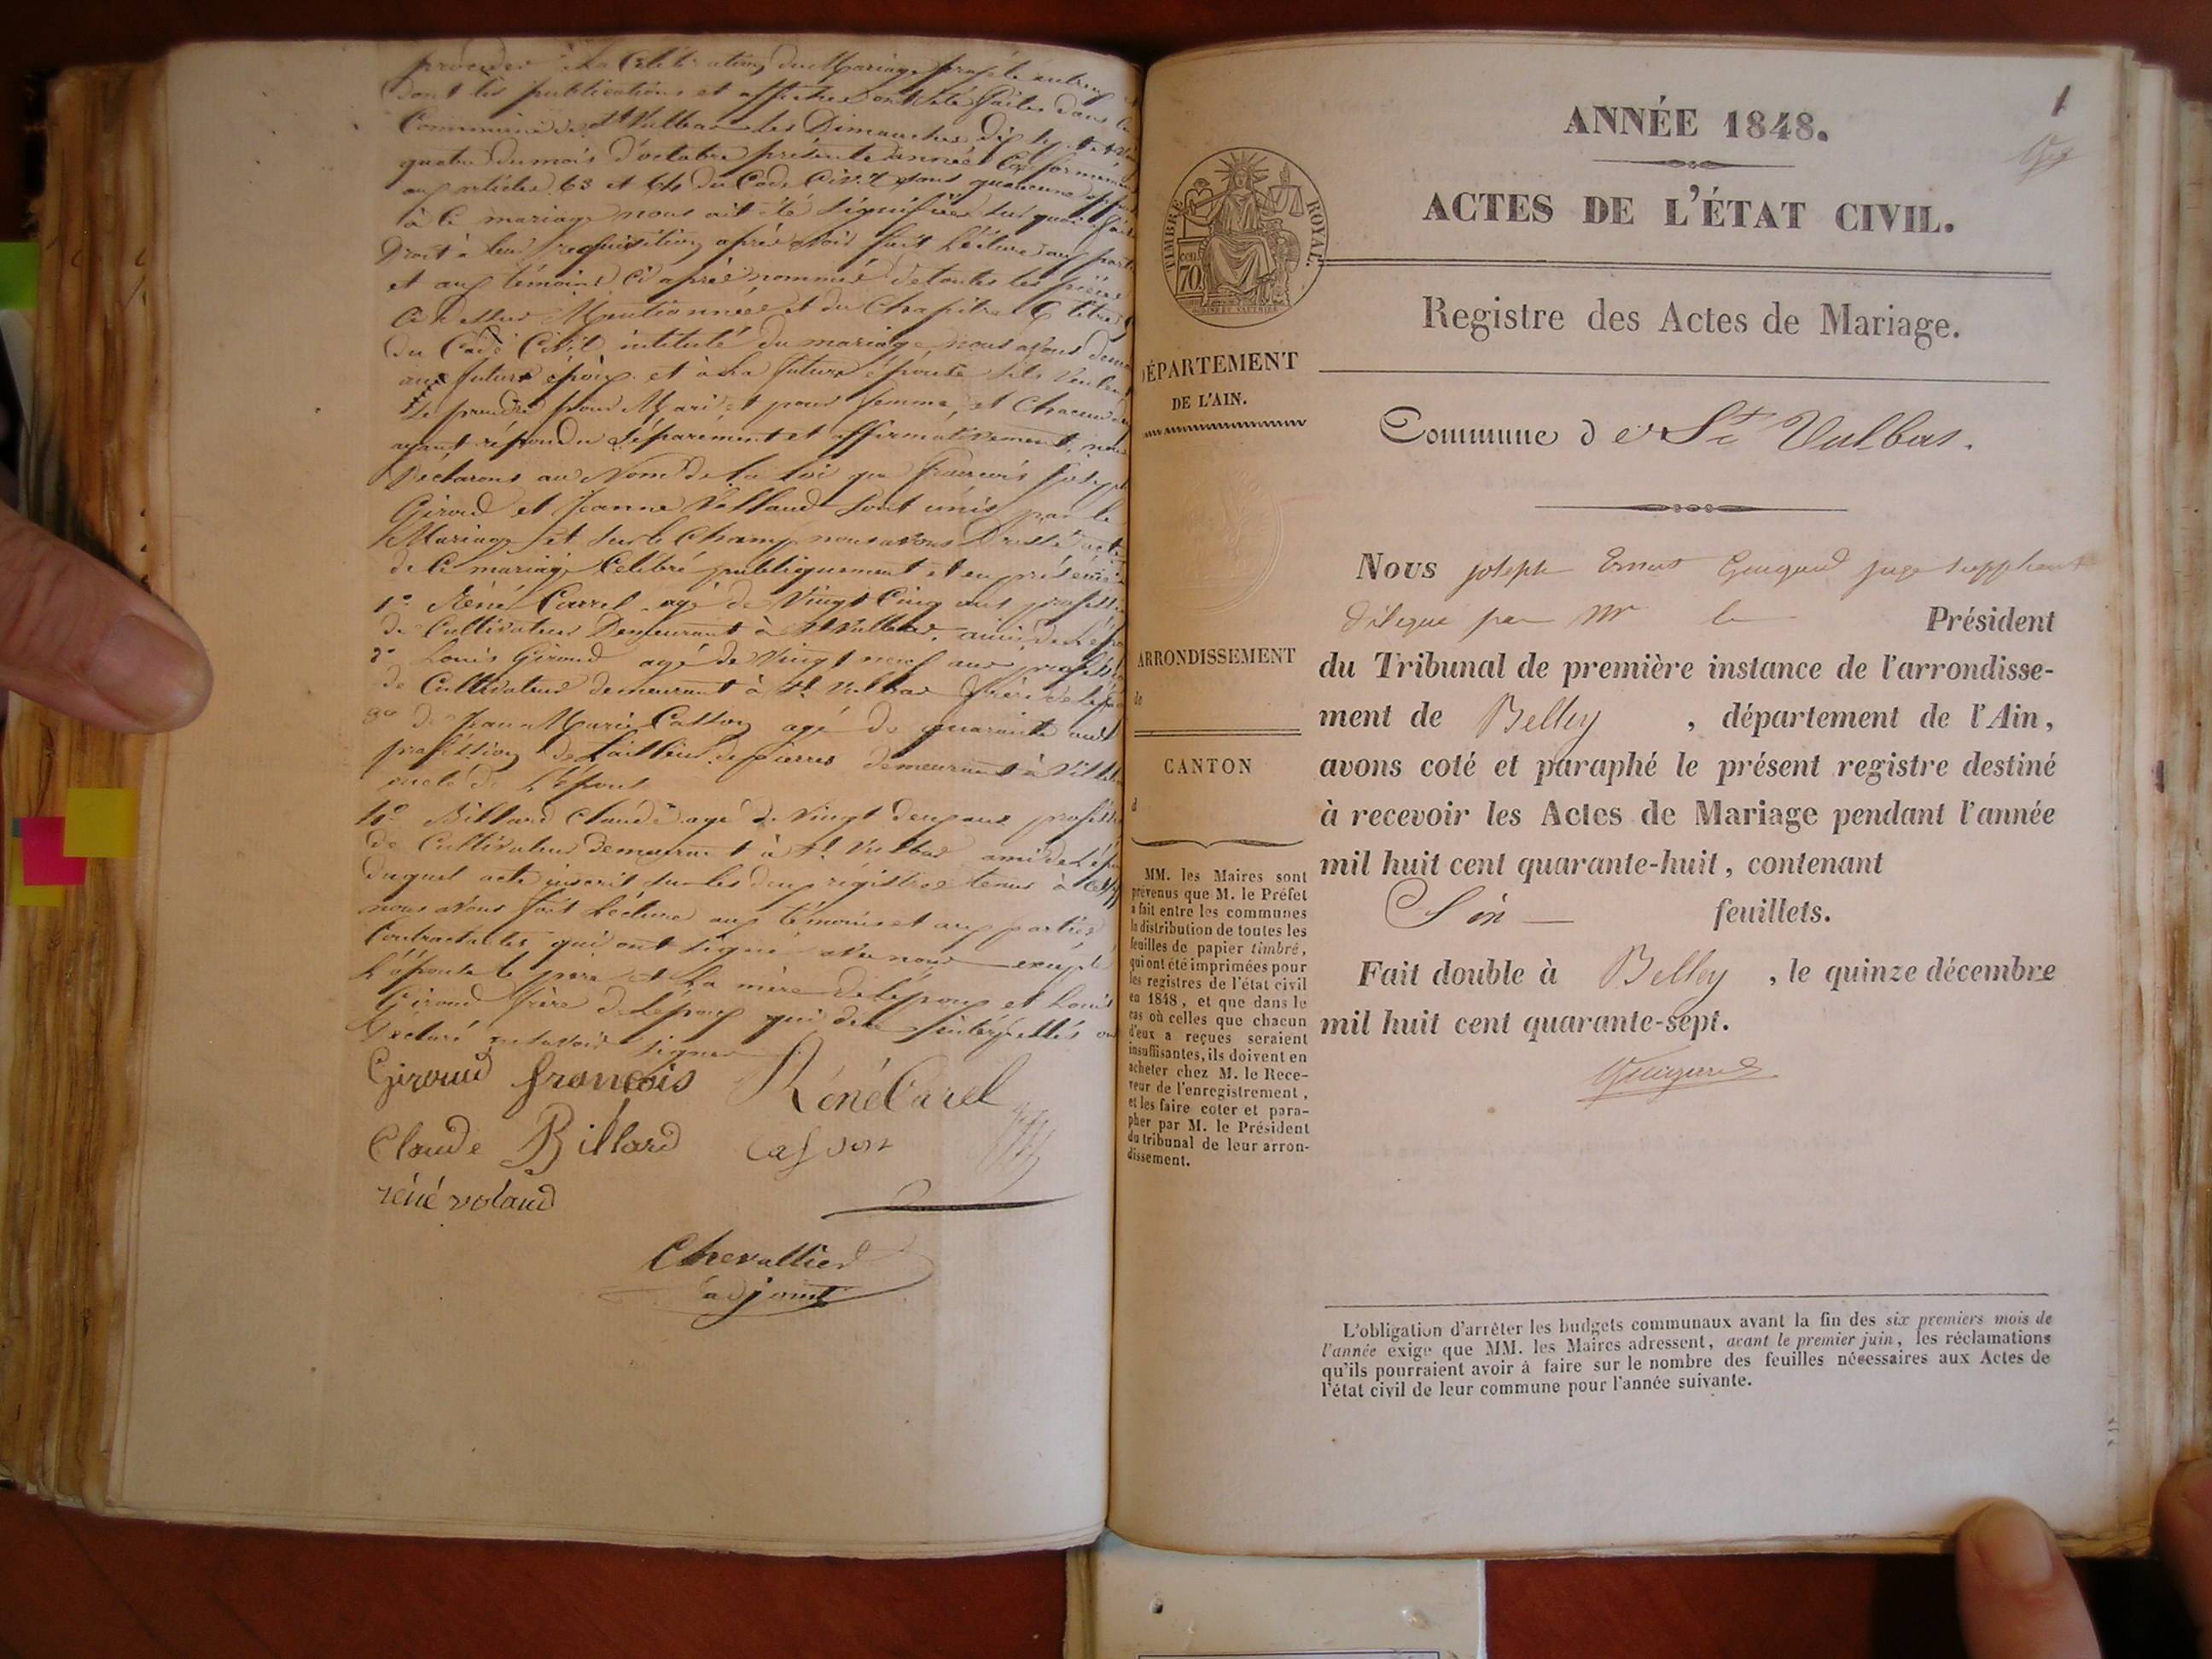 procéder à la Célébration du Mariage projeté entre
dont les publications et affiches ont été faites dans la
Commune de St Vulbas les Dimanches dix sept et
quatre du mois d'octobre présente année
aux articles 63 et 64 du Code Civil sans qu'aucune
à ce mariage nous ait été signifiée sur quoi
Droit à leur requisition, après avoir fait lecture aux
et aux témoins ci après nommés de toutes les pièces
ci dessus Mentionnées et du Chapitre 6 titre
du Code Civil intitulé du mariage, nous avons
aux futurs époux et à la future épouse s'ils veulent
se prendre pour Mari et pour femme, et Chacun
ayant répondu séparément et affirmativement, nous
Déclarons au Nom de la loi que francois Joseph
Giroud et Jeanne Vollaud sont unis par le
Mariage et sur le Champ nous avons Dressé acte
de ce mariage Célébré publiquement et en présence
1° René Carrel agé de Vingt Cinq ans
de Cultivateur Demeurant à St Vulbas, ami de
2° Louis Giroud agé de Vingt neuf ans
de Cultivateur demeurant à St Vulbas frère de
3° de Jean Marie Casson agé de quarante ans
profession de tailleur de pierres demeurant à
oncle de l'épous
4° Billard Claude agé de Vingt deux ans
de Cultivateur demeurant à St Vulbas ami de
duquel acte inscrit sur les deux régistres tenus à
nous avons fait lécture aux témoins et aux parties
Contractantes qui ont signé avec nous excepté
L'épouse le père et la mère de l'époux et Louis
Giroud frère de l'époux qui de ce intérpellés ont
Déclaré ne savoir signer
Giroud francois René Carel
Claude Billard Casson
réné voland
Chevallier
adjoint
1
ANNÉE 1848.
ACTES DE L'ÉTAT CIVIL.
TIMBRE ROYAL.
cen. 70
Registre des Actes de Mariage.
DÉPARTEMENT
DE L'AIN.
Commune de St Vulbas.
Nous joseph Guigard juge suppléant
délégué par Mr le Président
ARRONDISSEMENT
de
du Tribunal de première instance de l'arrondisse-
ment de Belley, département de l'Ain,
CANTON
d
avons coté et paraphé le présent registre destiné
à recevoir les Actes de Mariage pendant l'année
mil huit cent quarante-huit, contenant
Six feuillets.
Fait double à Belley, le quinze décembre
mil huit cent quarante-sept.
Guigard
MM. les Maires sont
prévenus que M. le Préfet
a fait entre les communes
la distribution de toutes les
feuilles de papier timbré,
qui ont été imprimées pour
les registres de l'état civil
en 1848, et que dans le
cas où celles que chacun
d'eux a reçues seraient
insuffisantes, ils doivent en
acheter chez M. le Rece-
veur de l'enregistrement,
et les faire coter et para-
pher par M. le Président
du tribunal de leur arron-
dissement.
L'obligation d'arrêter les budgets communaux avant la fin des six premiers mois de
l'année exige que MM. les Maires adressent, avant le premier juin, les réclamations
qu'ils pourraient avoir à faire sur le nombre des feuilles nécessaires aux Actes de
l'état civil de leur commune pour l'année suivante.